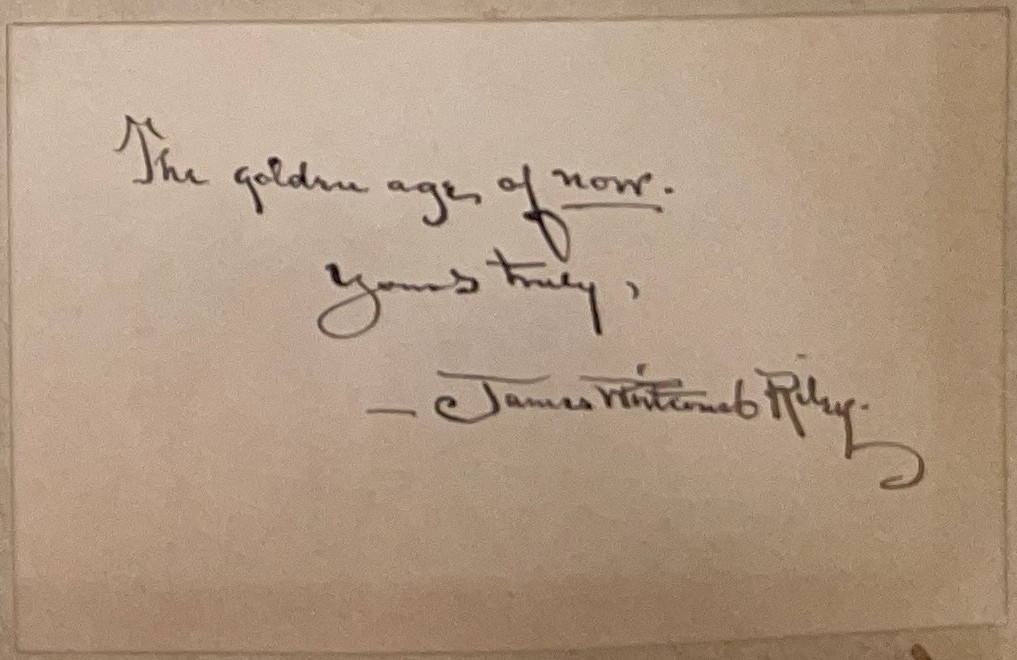 The golden age, of now.
Yours truly,
— James Whitcomb Riley.